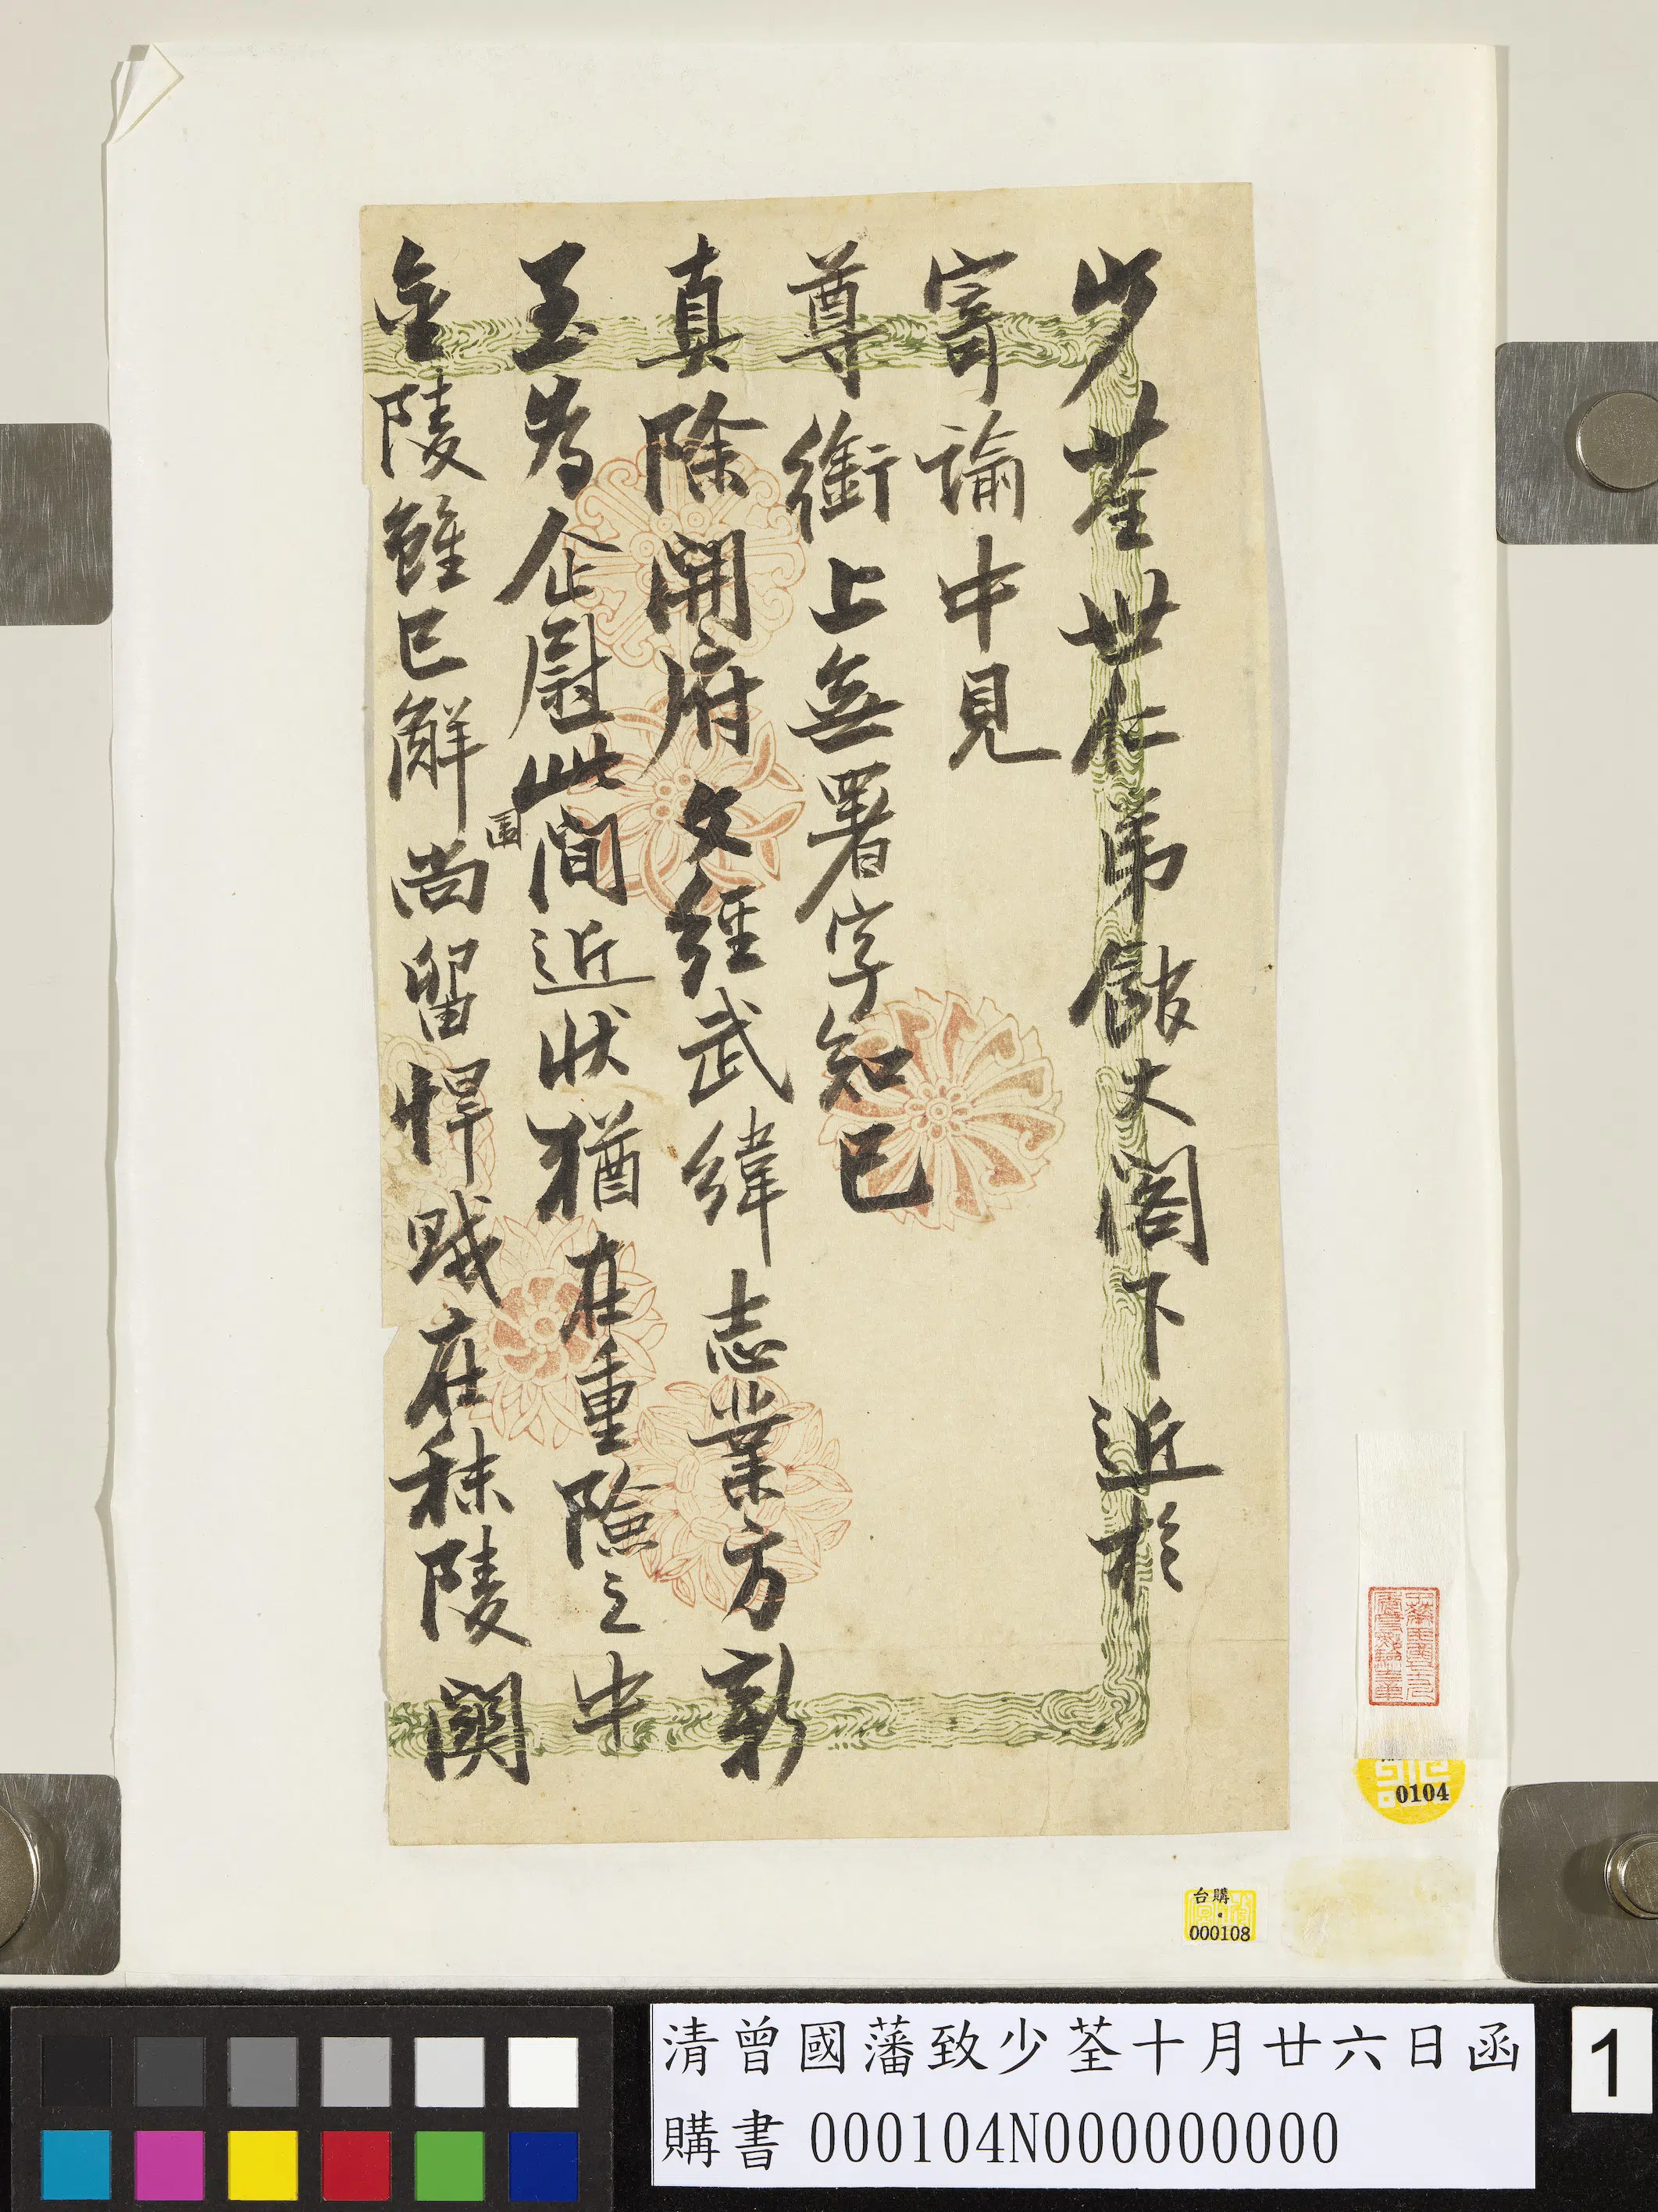 少荃世仁弟館丈閣下近於
寄諭中見
尊銜上無署字知已
真除開府文經武緯志業方新
至為企慰此間近狀猶在重險之中
金陵雖已解圍尚留悍賊在秣陵關
0104
台購
000108
清曾國藩致少荃十月廿六日函
購書 000104N000000000
1